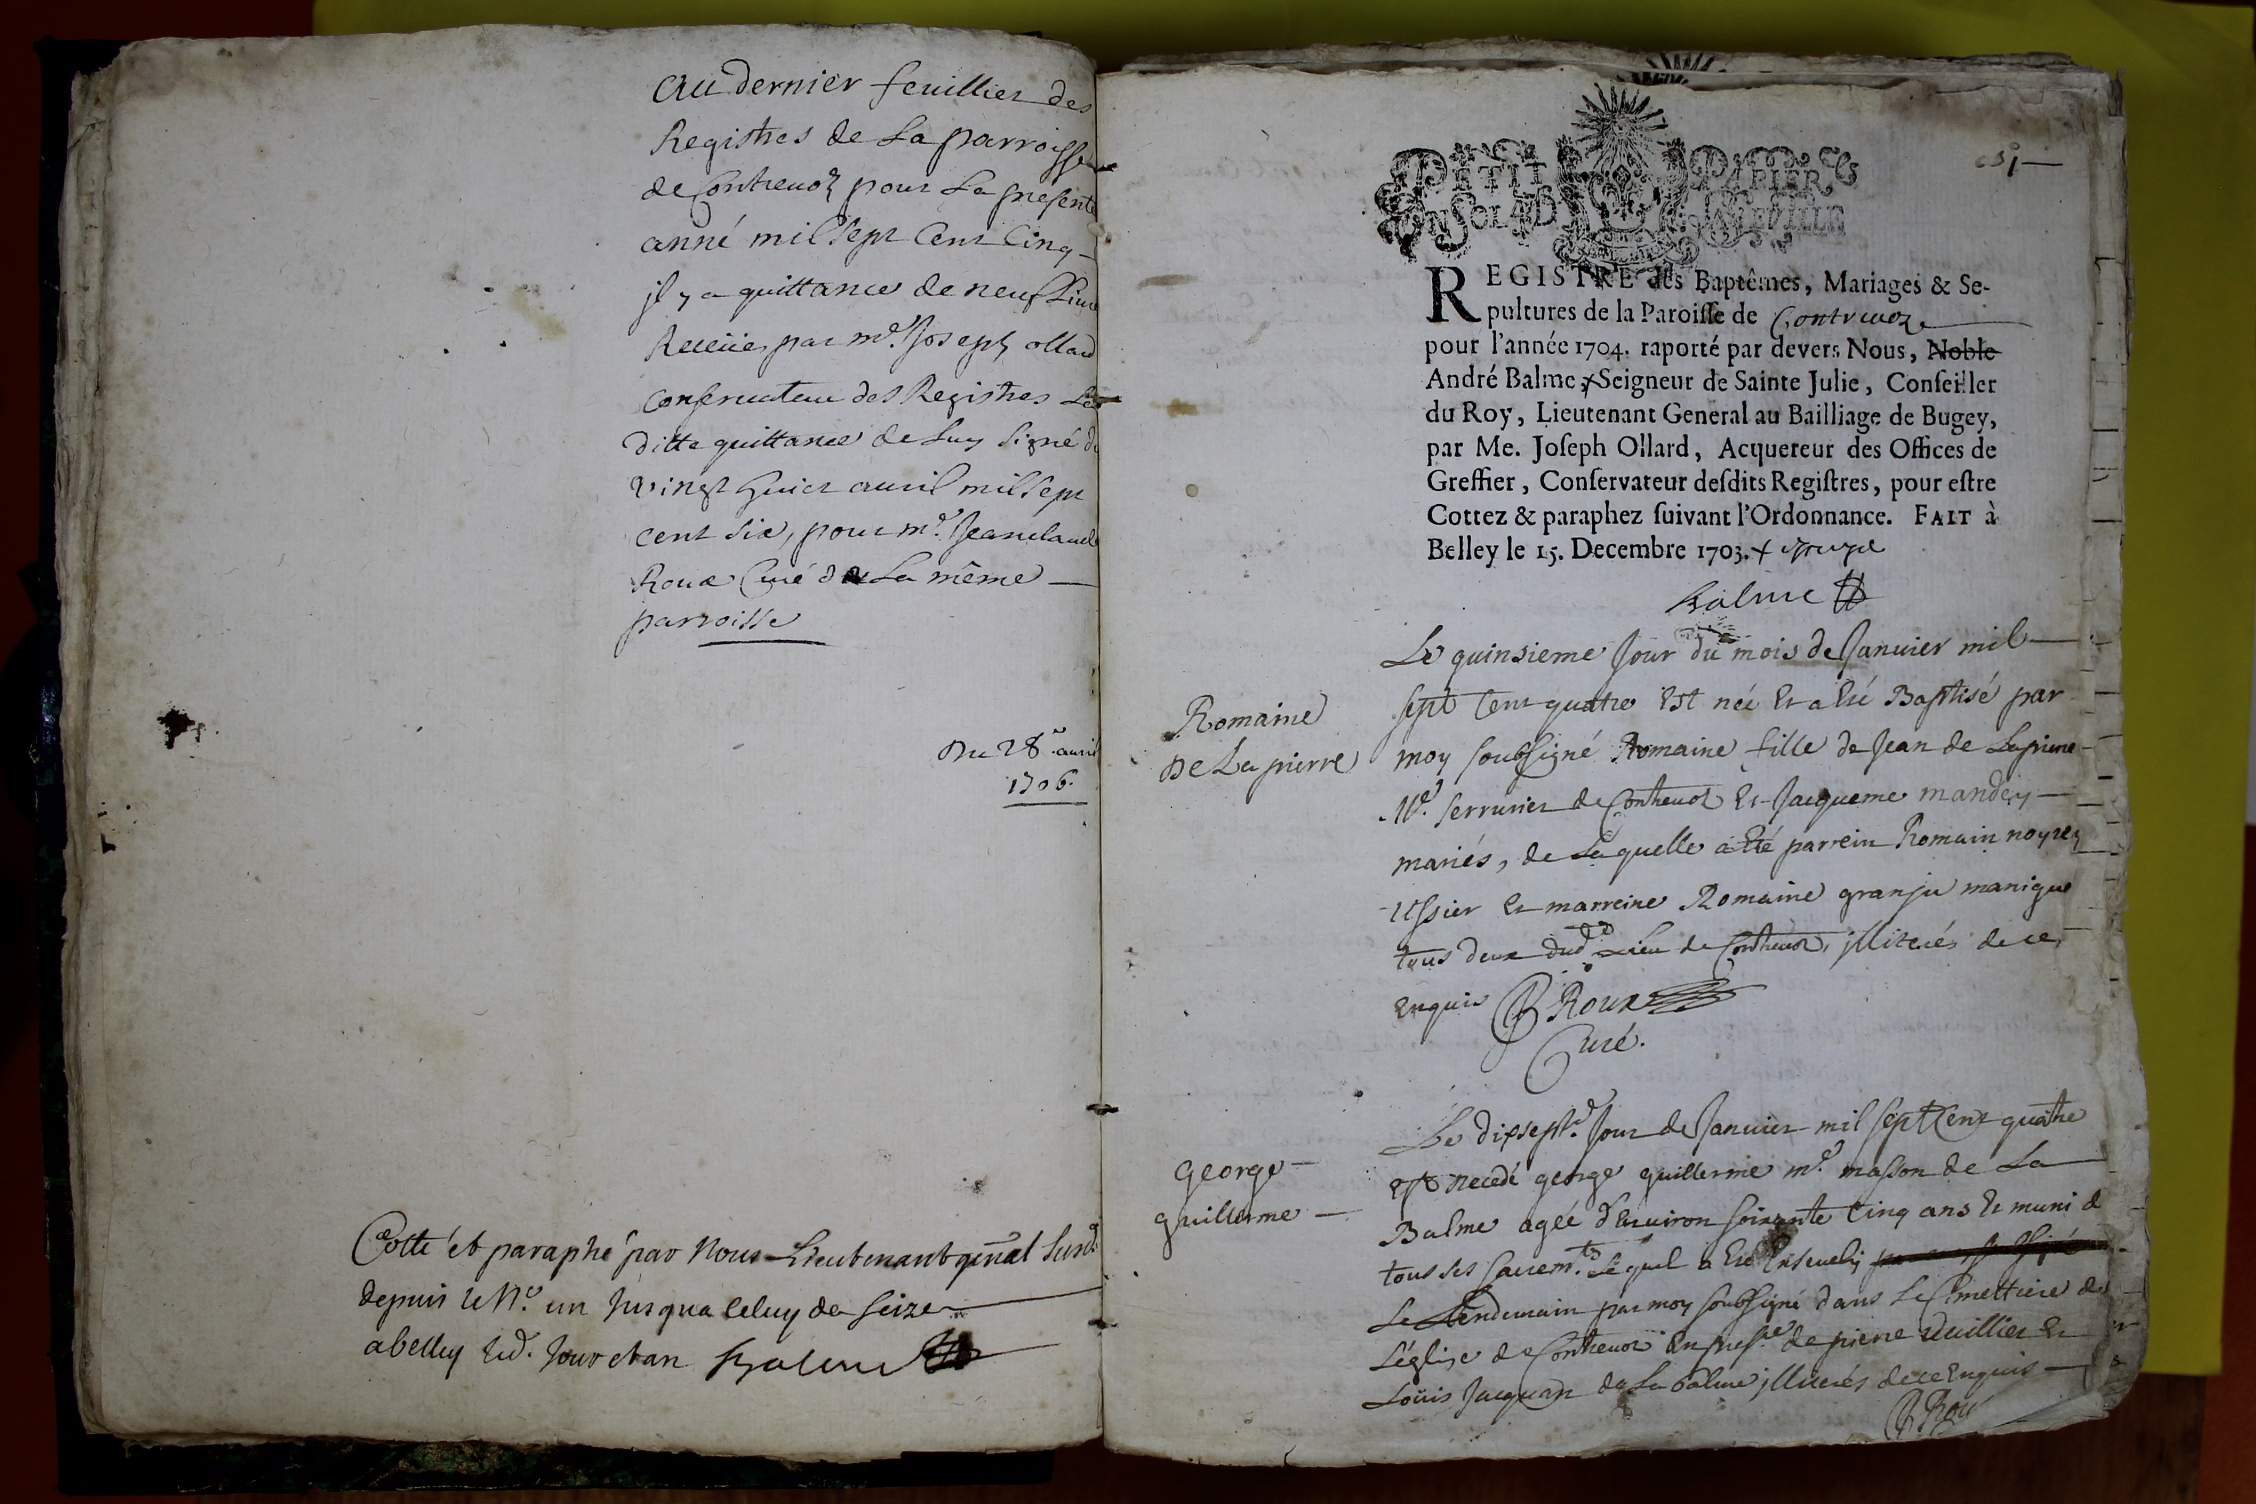 Au dernier feuillier des
Registres de La parroisse
de Contrevoz pour La presente
anné mil sept Cent Cinq
jl y a quittance de neuf Livre
Receüe par me. Joseph ollard
Conservateur des Registres La
ditte quittance de Luy signé du
vingt huict avril mil sept
cent six, pour mre. Jeanclaude
Roux Curé de La même
parroisse
Du 28e. avril
1706.
Cotté et paraphé par Nous Lieutenant gñal susd.
depuis le No. un jusqua celuy de seize
abelley led. jour et an Balme
PETIT PAPIER
UN SOL LA FEUILLE
REGISTRE des Baptêmes, Mariages & Se-
pultures de la Paroisse de Contrevoz
pour l'année 1704. raporté par devers Nous, Noble
André Balme, Seigneur de Sainte Julie, Conseiller
du Roy, Lieutenant General au Bailliage de Bugey,
par Me. Joseph Ollard, Acquereur des Offices de
Greffier, Conservateur desdits Registres, pour estre
Cottez & paraphez suivant l'Ordonnance. FAIT à
Belley le 15. Decembre 1703.
Balme
Romaine
De Lapierre
Le quinsieme Jour du mois de Janvier mil
sept Cent quatre Est néé Et a Eté Baptisé par
moy soubsigné Romaine fille de Jean de Lapierre
Me. serrurier de Contrevoz Et Jacqueme mandey
mariés, de Laquelle a Eté parrein Romain noyrey
Ussier Et marreine Romaine granju manique
tous deux dud. Lieu de Contrevoz, jlliterés de ce
Enquis Roux
Curé.
George
guillerme
Le dixsepte. Jour de Janvier mil sept Cent quatre
Est decedé george guillerme me. masson de La
Balme ageé d'Environ soixante Cinq ans Et muni de
tous ses sacremts. Lequel a Eté Ensevely
Le Lendemain par moy soubsigné dans Le Cimettiere de
L'église de Contrevoz En presce. de pierre Vuillier Et
Loüis Jacquan de La balme jlliterés de ce Enquis
Roux